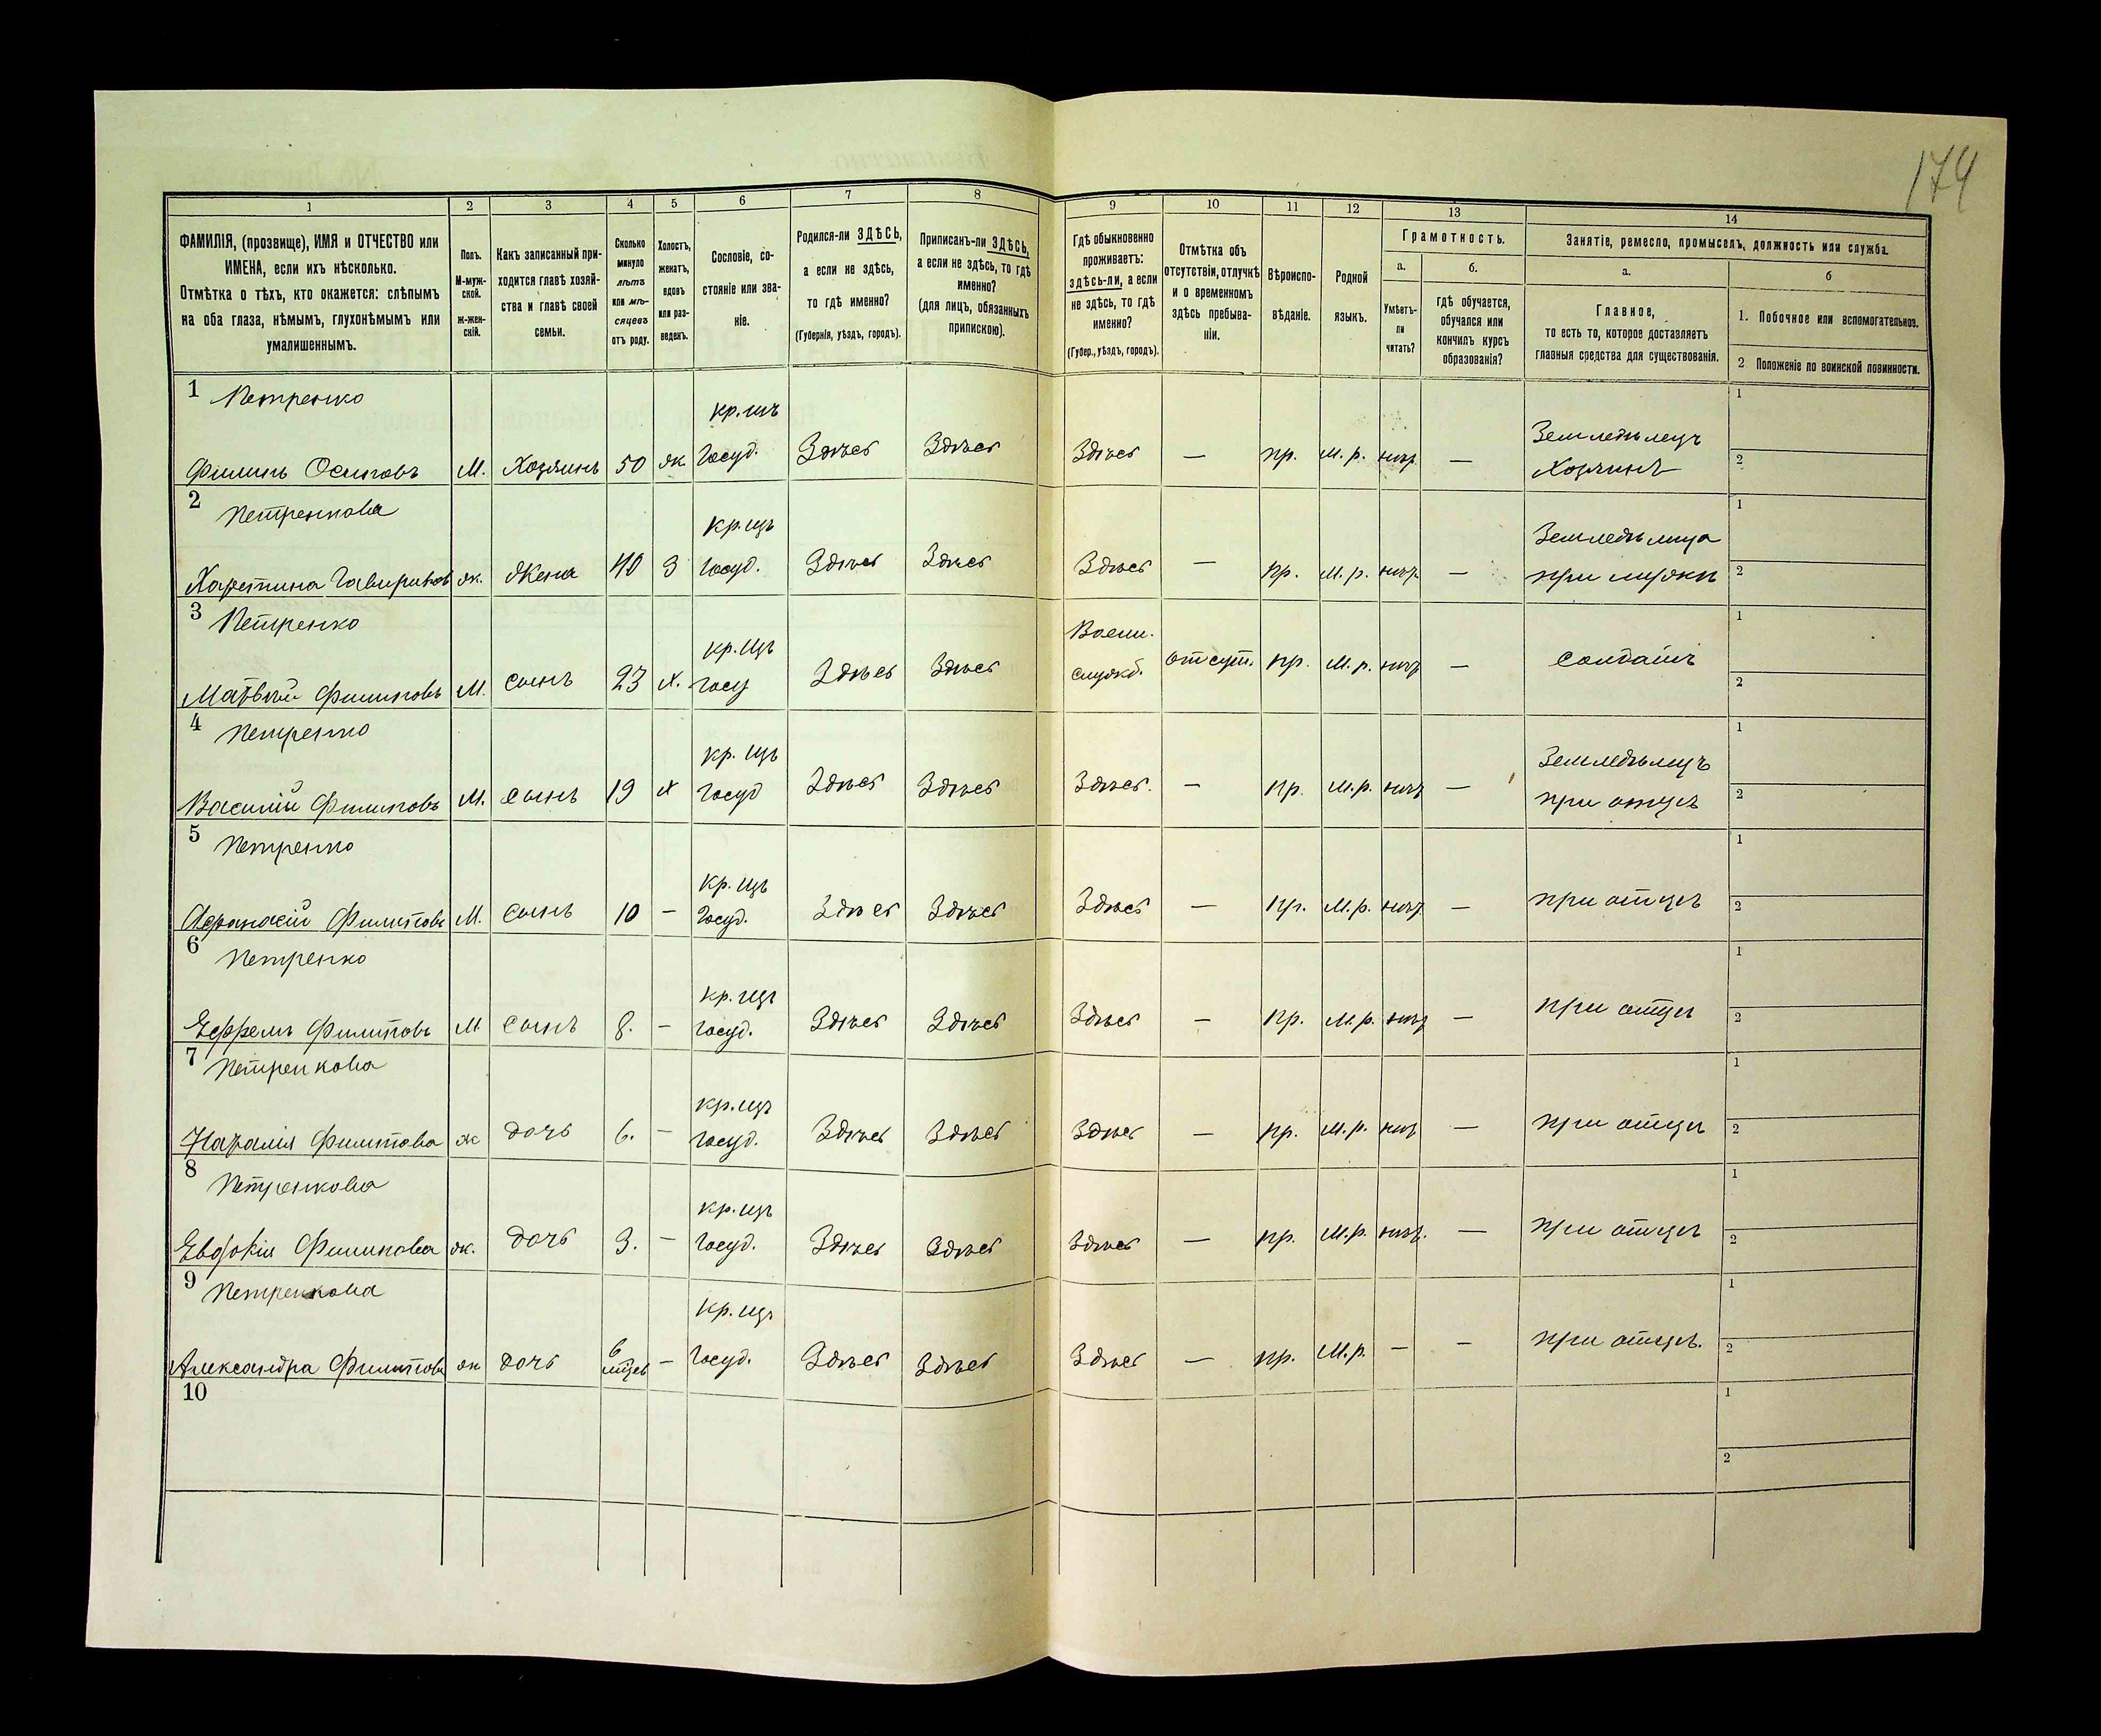 174
1 2 3 4 5 6 7 8 9 10 11 12 13 14
ФАМИЛІЯ, (прозвище), ИМЯ и ОТЧЕСТВО или ИМЕНА, если ихъ нѣсколько.
Отмѣтка о тѣхъ, кто окажется: слѣпымъ на оба глаза, нѣмымъ, глухонѣмымъ или умалишеннымъ.
Полъ. М-мужской. ж-женскій.
Какъ записанный приходится главѣ хозяйства и главѣ своей семьи.
Сколько минуло лѣтъ или мѣсяцевъ отъ роду.
Холостъ, женатъ, вдовъ или разведенъ.
Сословіе, состояніе или званіе.
Родился-ли ЗДѢСЬ, а если не здѣсь, то гдѣ именно? (Губернія, уѣздъ, городъ).
Приписанъ-ли ЗДѢСЬ, а если не здѣсь, то гдѣ именно? (для лицъ, обязанныхъ припискою).
Гдѣ обыкновенно проживаетъ: здѣсь-ли, а если не здѣсь, то гдѣ именно? (Губер., уѣздъ, городъ).
Отмѣтка объ отсутствіи, отлучкѣ и о временномъ здѣсь пребываніи.
Вѣроисповѣданіе.
Родной языкъ.
Грамотность.
а. Умѣетъ-ли читать?
б. гдѣ обучается, обучался или кончилъ курсъ образованія?
Занятіе, ремесло, промыселъ, должность или служба.
а. Главное, то есть то, которое доставляетъ главныя средства для существованія.
б 1. Побочное или вспомогательное.
2 Положеніе по воинской повинности.
1 Петренко кр.цъ 1
Филипъ Осиповъ М. Хозяинъ 50 ж Госуд. Здѣсь Здѣсь Здѣсь — пр. м.р. нѣт — Земледѣлецъ Хозяинъ 2
2 Петренкова кр.цъ 1
Харитина Гавирилов ж. Жена 40 З Госуд. Здѣсь Здѣсь Здѣсь — пр. м.р. нѣт — Земледѣлица при мужѣ 2
3 Петренко кр.цъ Воен. 1
Матвѣй Филиповъ М. сынъ 23 х. Госу Здѣсь Здѣсь служб. отсут. пр. м.р. нѣт — солдатъ 2
4 Петренко кр.цъ 1
Василій Филиповъ М. сынъ 19 х Госуд Здѣсь Здѣсь Здѣсь. — пр. м.р. нѣт — Земледѣлецъ при отцѣ 2
5 Петренко кр.цъ 1
Афанасій Филиповъ М. сынъ 10 — Госуд. Здѣсь Здѣсь Здѣсь — пр. м.р. нѣт — при отцѣ 2
6 Петренко кр.цъ 1
Ефремъ Филиповъ М сынъ 8. — Госуд. Здѣсь Здѣсь Здѣсь — пр. м.р. нѣт — при отцѣ 2
7 Петренкова кр.цъ 1
Наталія Филипова ж дочь 6. — Госуд. Здѣсь Здѣсь Здѣсь — пр. м.р. нѣт — при отцѣ 2
8 Петренкова кр.цъ 1
Евдокія Филипова ж. дочь 3. — Госуд. Здѣсь Здѣсь Здѣсь — пр. м.р. нѣт. — при отцѣ 2
9 Петренкова кр.цъ 1
Александра Филипова ж дочь 6 мѣцев — Госуд. Здѣсь Здѣсь Здѣсь — пр. м.р. — — при отцѣ. 2
10 1
2